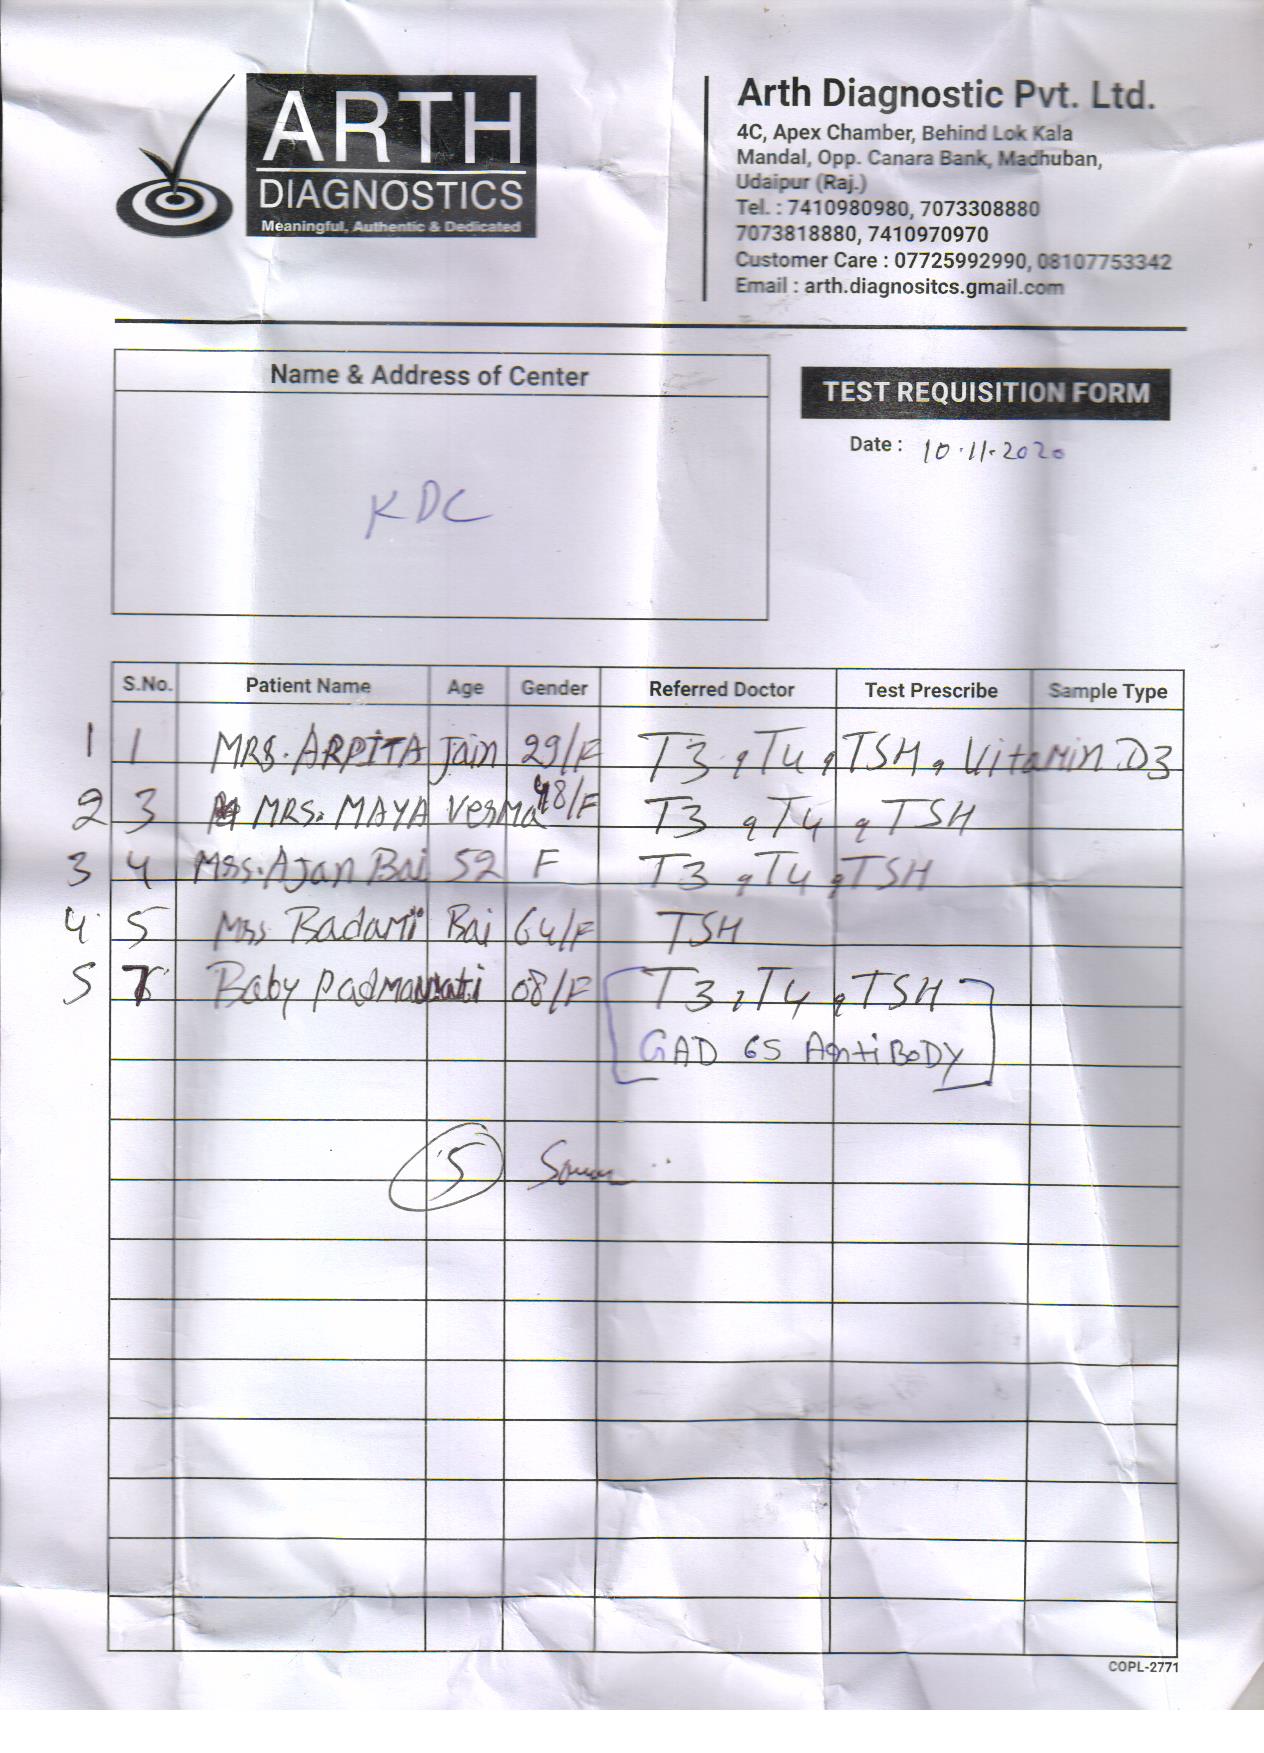 ARTH
DIAGNOSTICS
Meaningful, Authentic & Dedicated
Arth Diagnostic Pvt. Ltd.
4C, Apex Chamber, Behind Lok Kala
Mandal, Opp. Canara Bank, Madhuban,
Udaipur (Raj.)
Tel. : 7410980980, 7073308880
7073818880, 7410970970
Customer Care : 07725992990, 08107753342
Email : arth.diagnositcs.gmail.com
Name & Address of Center
KDC
TEST REQUISITION FORM
Date : 10.11.2020
S.No. Patient Name Age Gender Referred Doctor Test Prescribe Sample Type
1 1 MRS. ARPITA Jain 29/F T3, T4, TSH, Vitamin D3
2 3 MRS. MAYA Verma 48/F T3, T4, TSH
3 4 Mrs. Ajan Bai 52 F T3, T4, TSH
4. 5 Mrs Badami Bai 64/F TSH
5 7 Baby Padmawati 08/F T3, T4, TSH
GAD 65 AntiBODY
5
COPL-2771